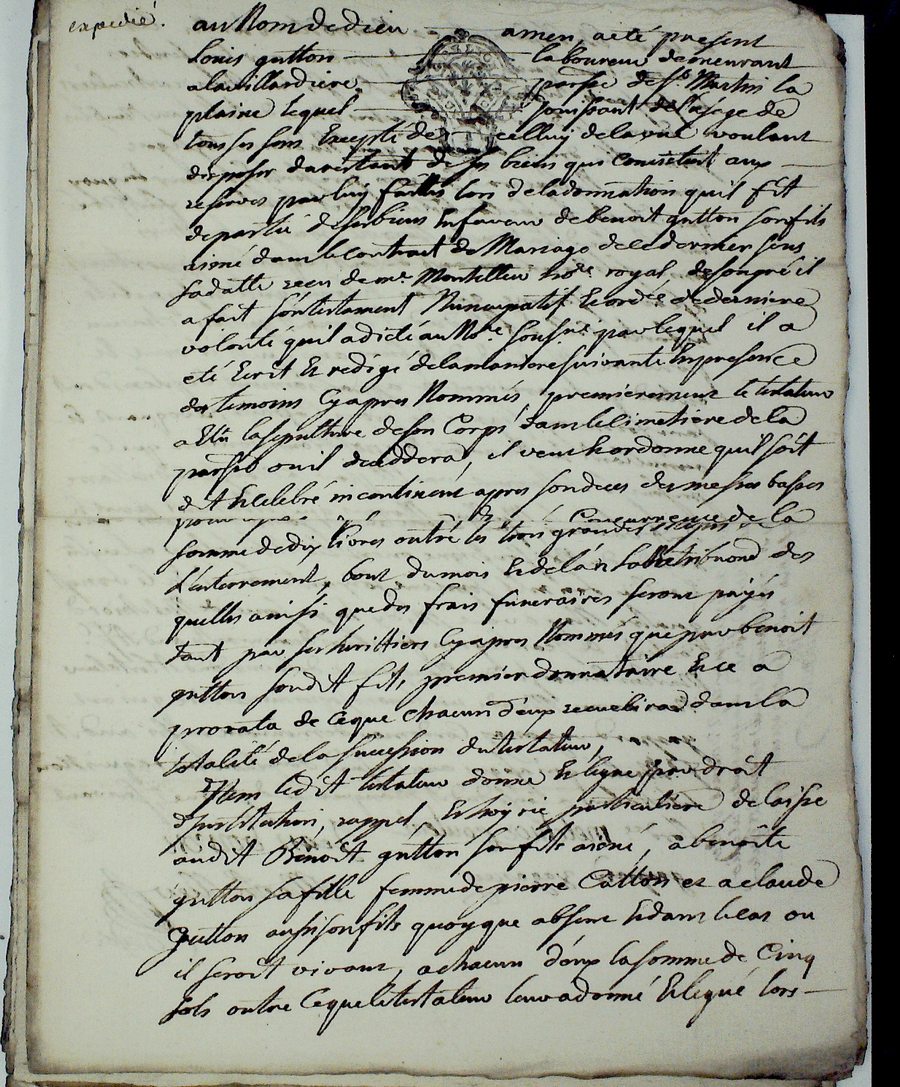 expedié.
au Nom de dieu amen, a eté present
Louis gutton laboureur demeurant
a la villardiere parsse de St. Martin la
plaine lequel jouissant de l'usage de
tous ses sens Excepté de celluy de la vue voulant
disposer de ses biens qui consistent aux
reserves par luy faittes lors de la donnation qu'il fit
de partie de ses biens En faveur de benoit gutton son fils
ainé dans le contrat de Mariage de ce dernier sous
sa datte recu de me. Montellier no.re royal, de son gré il
a fait son testament Nuncupatif Et ord.ce de derniere
volonté qu'il a dicté au No.re sous.né par lequel il a
eté Ecrit Et redigé de la maniere suivante En presence
des temoins Cy apres Nommés, premierement le testateur
a Elu la sepulture de son Corps dans le cimetiere de la
parsse ou il decedera, il veut Et ordonne qu'il soit
dit Et Celebré incontinent apres son deces des messes basses
Concurrence de la
somme de dix livres outre les trois grandes
L'enterrement, bout du mois Et de l'an la Retribution des
quelles ainsi que des frais funeraires seront payés
tant par ses heritiers Cy apres Nommés que par benoit
gutton son dit fils, premier donnataire Et ce a
prorata de ce que chacun d'eux recueillira dans la
totalité de la succession du testateur,
Item ledit testateur donne Et legue par droit
d'institution, rappel, Et hoirie particuliere delaisse
audit Benoit gutton son fils ainé, a benoite
gutton sa fille femme de pierre Catton et a claude
gutton aussi son fils quoyque absent Et dans le cas ou
il seroit vivant, a chacun d'eux la somme de Cinq
sols outre Ce que le testateur leur a donné Et legué lors